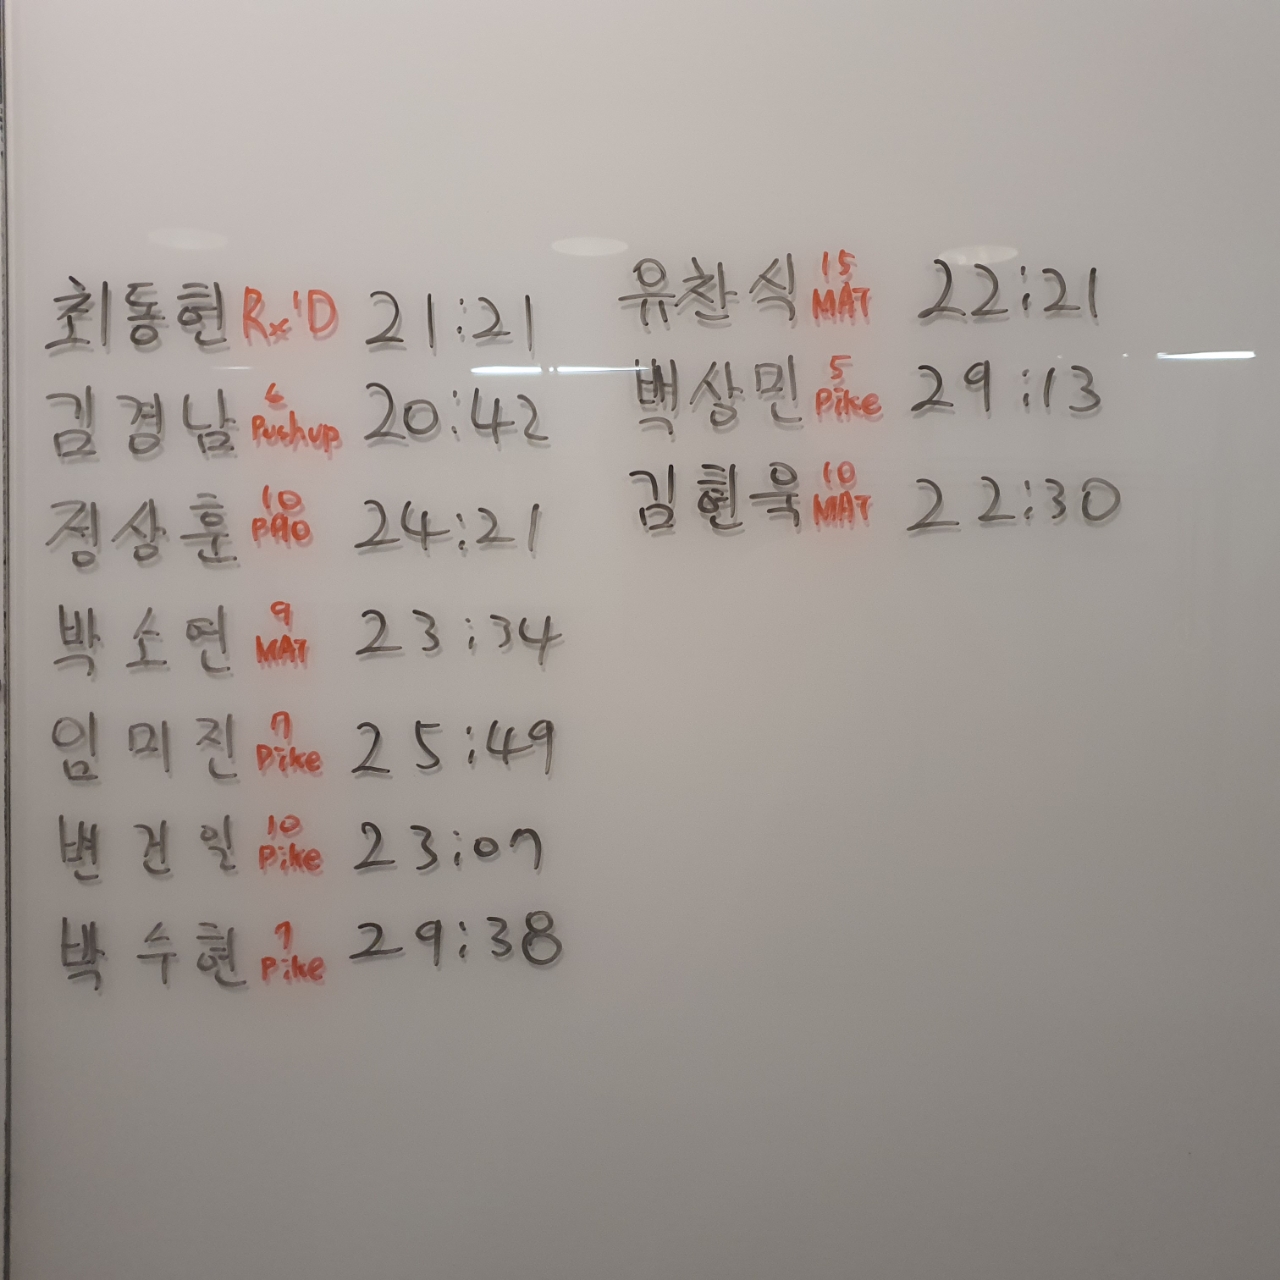 최동현 Rx'D 21:21
김경남 6 Puchup 20:42
정상훈 10 24:21
박소연 9 MAT 23:34
임미진 7 Pike 25:49
변건일 10 Pike 23:07
박수현 7 Pike 29:38
유찬식 15 MAT 22:21
백상민 5 Pike 29:13
김현욱 10 MAT 22:30